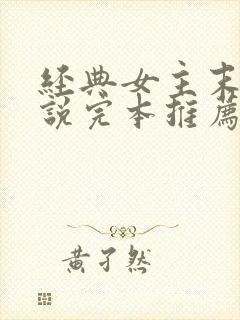 經典女主末
說完本推薦
黃孑然